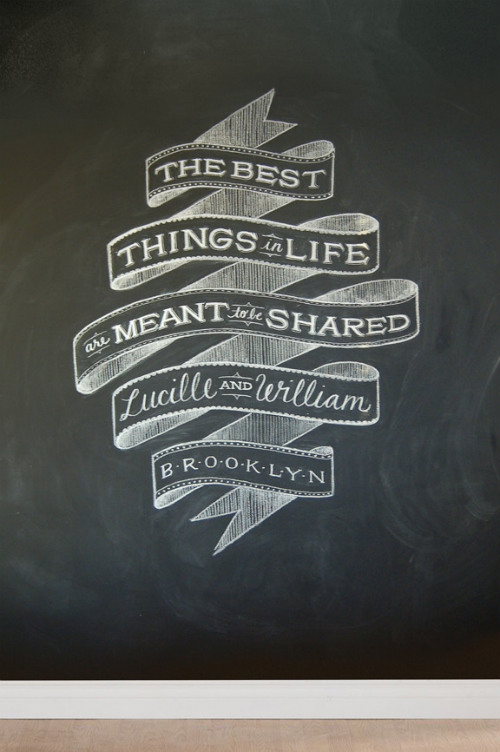 THE BEST
THINGS in LIFE
are MEANT to be SHARED
Lucille AND William
B·R·O·O·K·L·Y·N